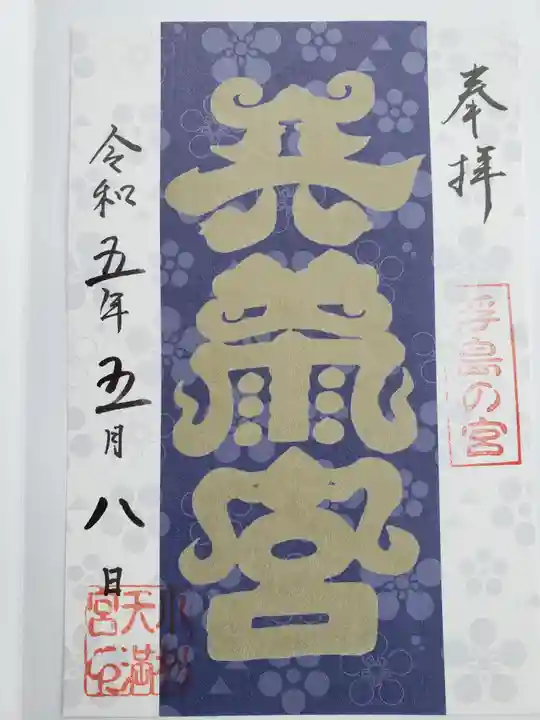 奉拝
浮島の宮
天満宮
令和五年五月八日
小松
天満
宮印